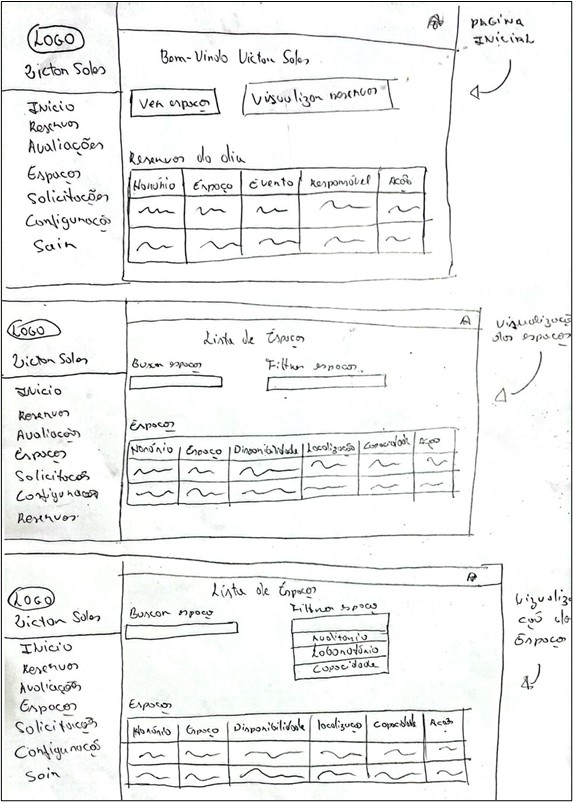 LOGO
Victor Sales
Início
Reservas
Avaliações
Espaços
Solicitações
Configuração
Sair
Bem-Vindo Victor Sales
Ver espaços
Visualizar reservas
Reservas do dia
Horário Espaço Evento Responsável Ação
PAGINA
INICIAL
LOGO
Victor Sales
Início
Reservas
Avaliações
Espaços
Solicitações
Configurações
Reservas
Lista de Espaços
Buscar espaços
Filtrar espaços
Espaços
Horário Espaço Disponibilidade Localização Capacidade Ação
Visualização
dos espaços
LOGO
Victor Sales
Início
Reservas
Avaliações
Espaços
Solicitações
Configurações
Sair
Lista de Espaços
Buscar espaço
Filtrar espaço
Auditório
Laboratório
Capacidade
Espaços
Horário Espaço Disponibilidade localização Capacidade Ação
Vizualiza
ção dos
Espaços